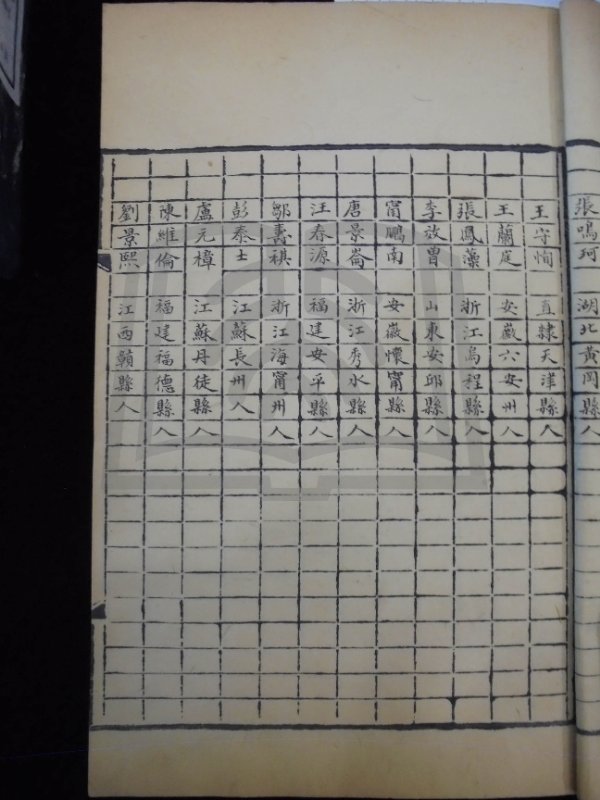 張鳴珂 湖北黃岡縣人
王守恂 直隸天津縣人
王蘭庭 安徽六安州人
張鳳藻 浙江烏程縣人
李效曾 山東安邱縣人
甯鵬南 安徽懷甯縣人
唐景崙 浙江秀水縣人
汪春源 福建安平縣人
鄒壽祺 浙江海甯州人
彭泰士 江蘇長州人
盧元樟 江蘇丹徒縣人
陳維倫 福建福德縣人
劉景熙 江西贛縣人